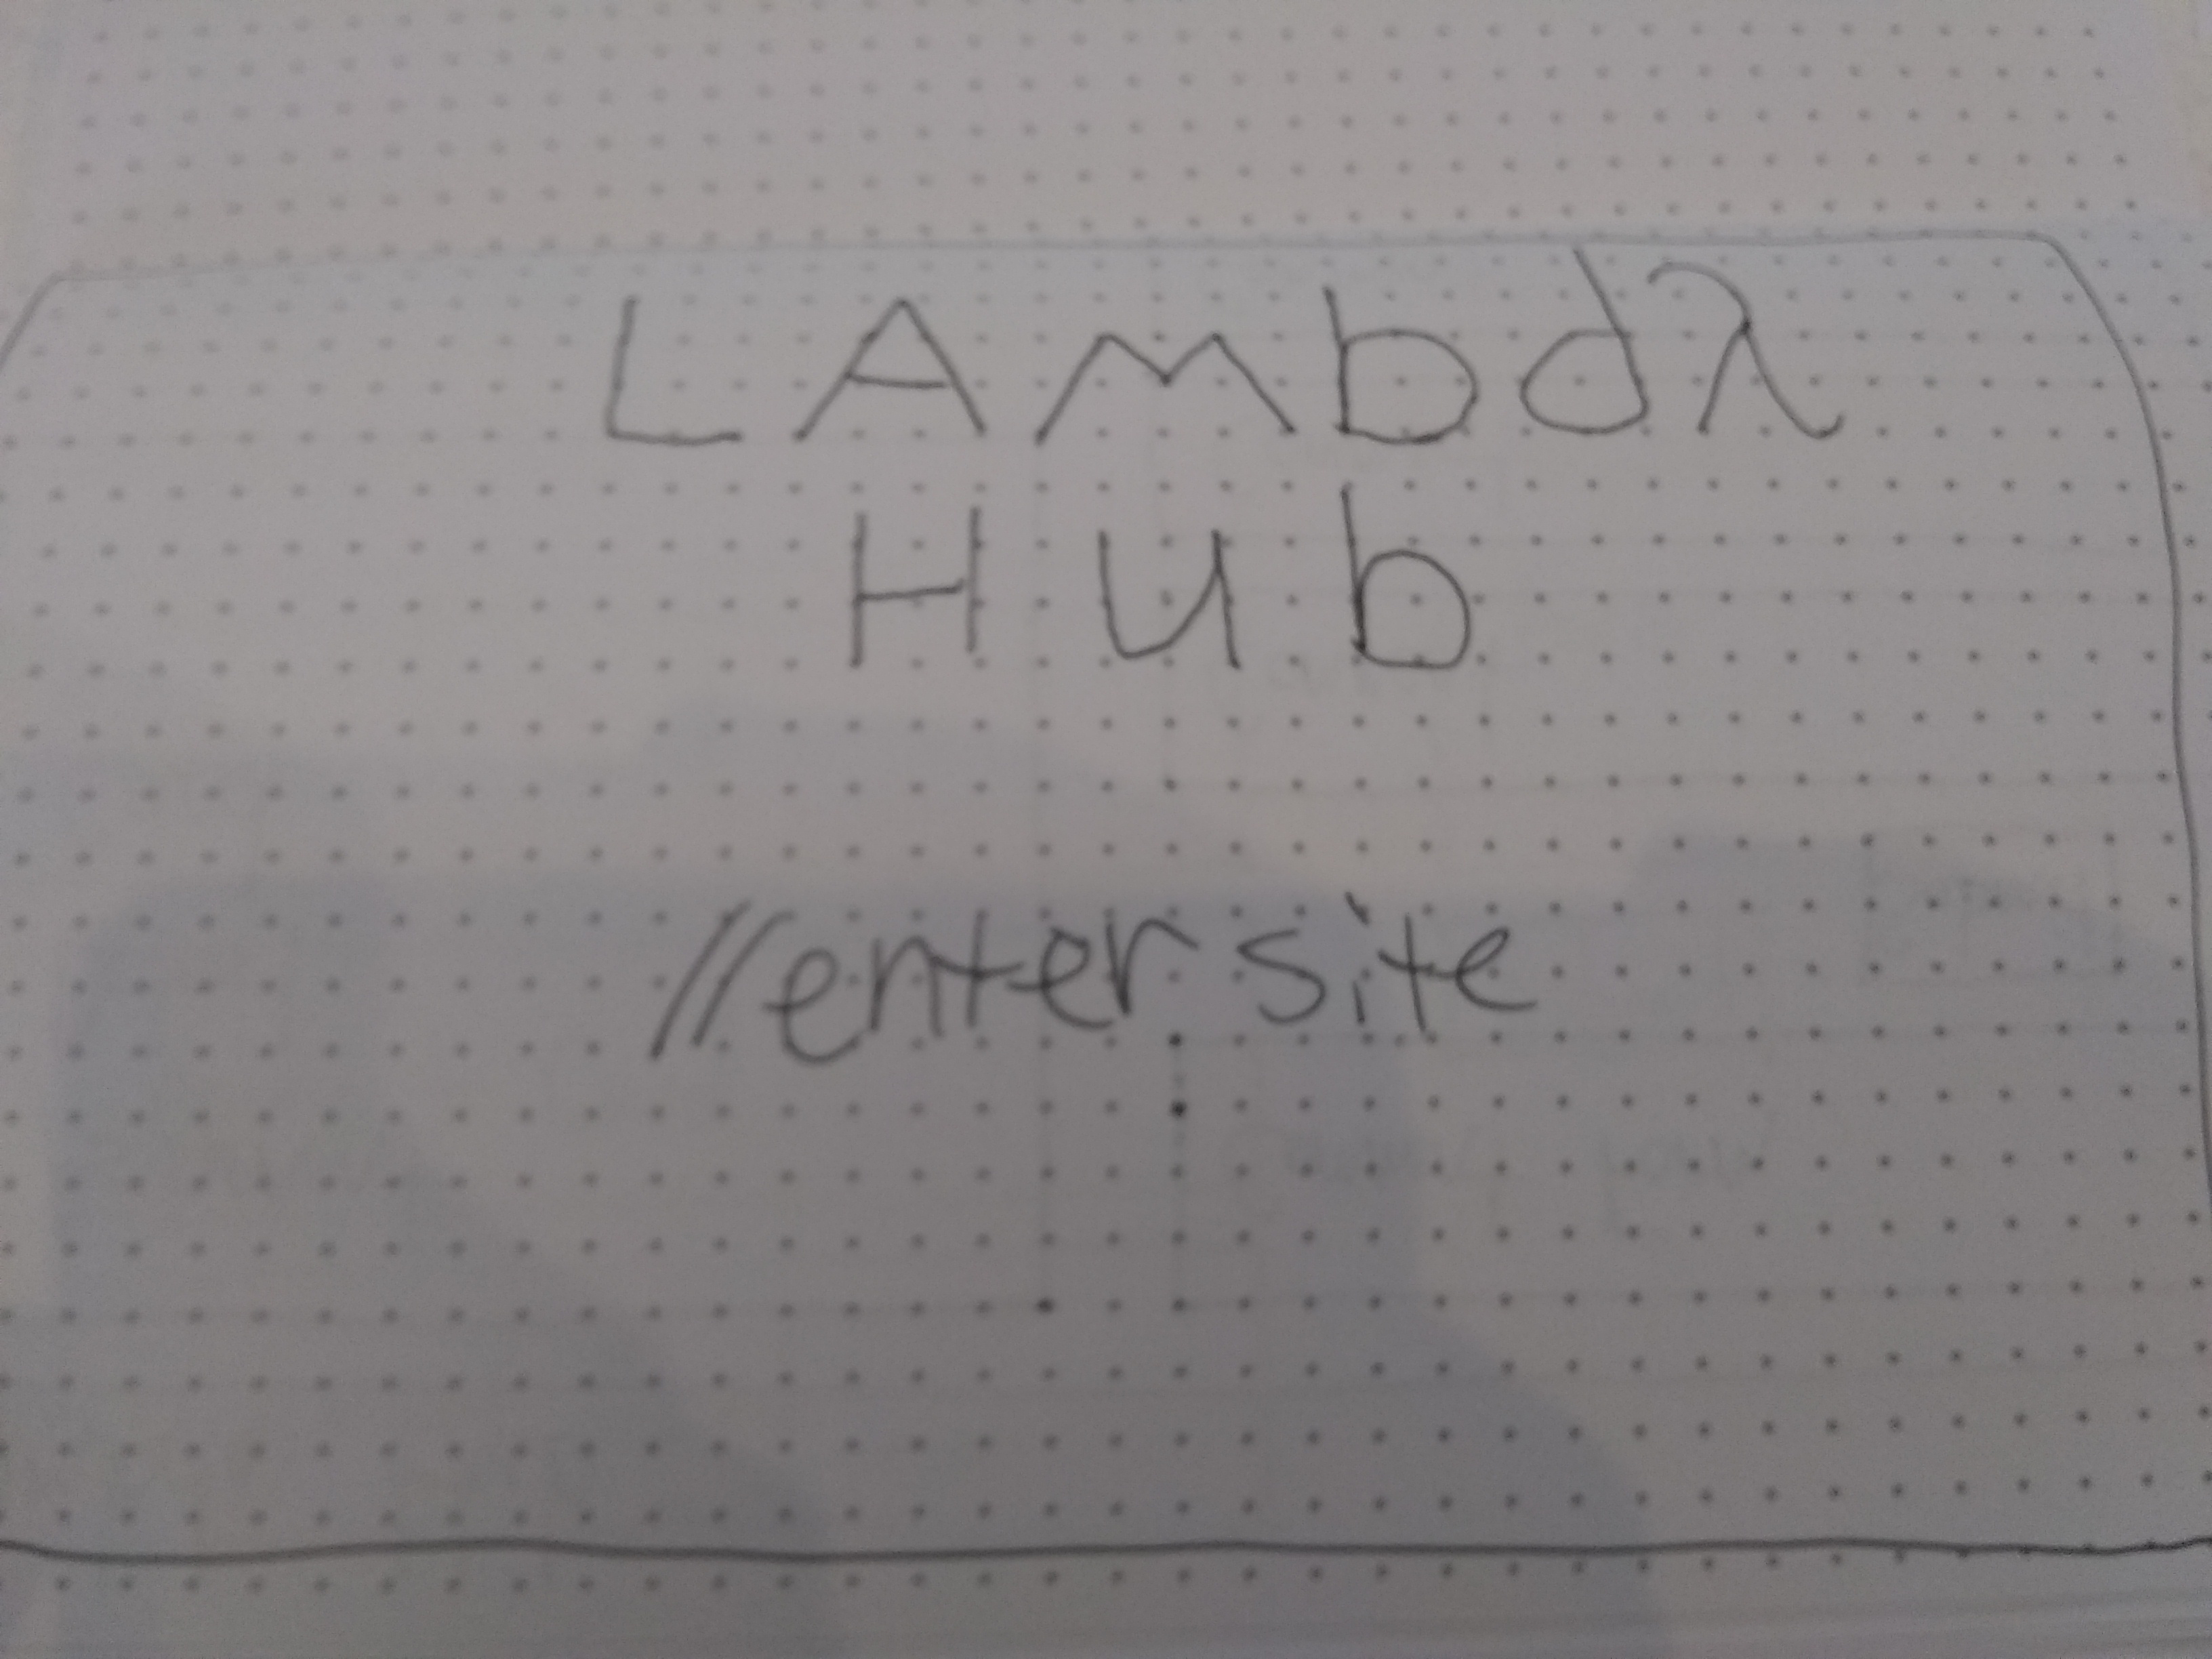 LAmbdλ
Hub
//enter site